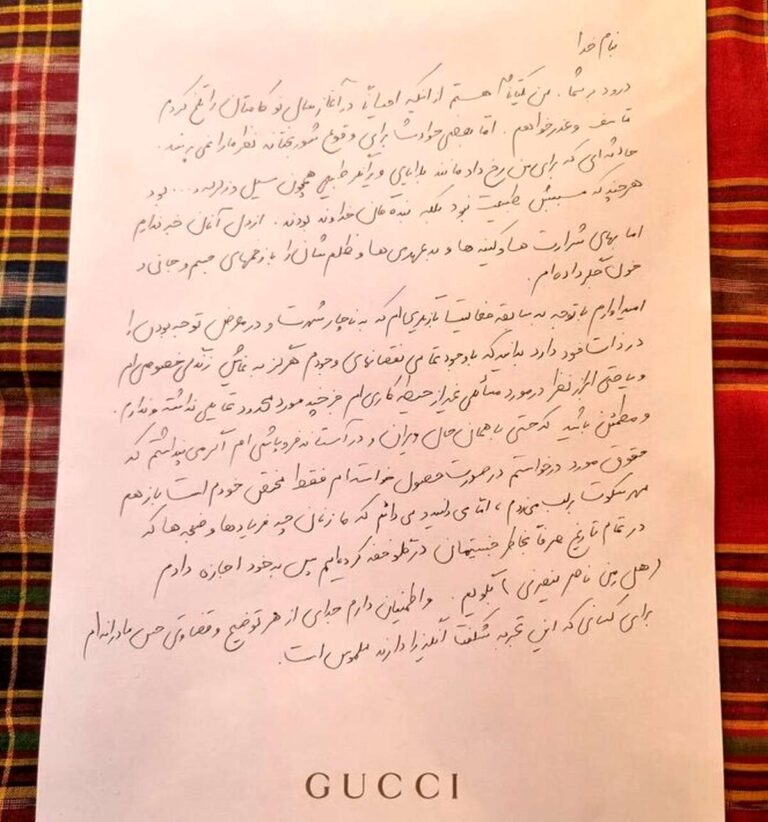 بنام خدا
درود بر شما. من کتایونم هستم از اینکه احیاناً در آغاز سال نو کامتان را تلخ کردم
متاسف و عذرخواهم. اما بعضی حوادث برای وقوع شوربختانه نظر ما را نمی‌پرسند.
حادثه‌ای که برای من رخ داد مانند بلایای طبیعی همچون سیل و زلزله ... بود
هرچند که مسببش طبیعت نبود بلکه بندگان خداوند بودند. از دل آنان خبر ندارم
اما بهای شرارت‌ها و کینه‌ها و بدعهدی‌ها و ظلم‌شان را با زخمهای جسم و جانی د
خون آجر داده‌ام.
امیدوارم با توجه به سابقه فعالیت بازیگری‌ام که به ناچار شهرت و در معرض توجه بودن را
در ذات خود دارد بدانید که با وجود تمامی نقصانهای وجودم هرگز به نمایش زندگی خصوصی‌ام
و یا حتی ابراز نظر در مورد مسائلی غیر از حیطه کاری‌ام جز چند مورد محدود تمایلی نداشته و ندارم.
و مطمئن باشید که حتی با همان حال ویران و در آستانه فروپاشی‌ام اگر می‌پنداشتم که
حقوق مورد درخواستم در صورت حصول خواسته‌ام فقط مختص خودم است باز هم
مهر سکوت بر لب می‌زدم، اما می‌دانید و می‌دانم که ما زنان چه فریادها و ضجه‌ها که
در تمام تاریخ صرفاً بخاطر جنسیتمان در گلو خفه کرده‌ایم پس به خود اجازه دادم
(هل من ناصر ینصرنی) بگویم. و اطمینان دارم جدای از هر توضیح و قضاوتی حس مادرانه‌ام
برای کسانی که این تجربه شگفت‌انگیز را دارند ملموس است.
GUCCI